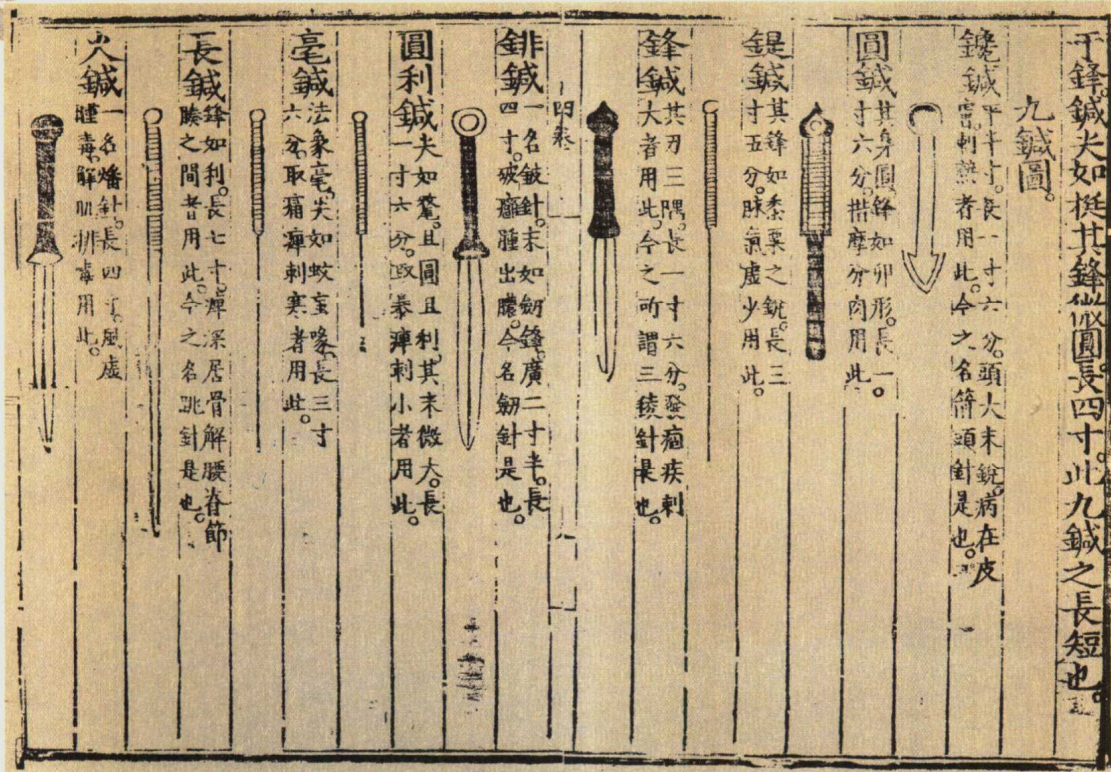 于鋒鍼尖如挺其鋒微圓長四寸此九鍼之長短也。
九鍼圖。
鑱鍼
平半寸。長一寸六分。頭大末銳。病在皮
膚。刺熱者用此。今之名箭頭針是也。
圓鍼
其身圓。鋒如卵形。長一
寸六分。揩摩分肉用此。
鍉鍼
其鋒如黍粟之銳。長三
寸五分。脉氣虚少用此。
鋒鍼
其刃三隅。長一寸六分。發痼疾刺
大者用此。今之所謂三稜針是也。
四卷
八
鈹鍼
一名鈹針。末如劒鋒。廣二寸半。長
四寸。破癰腫出膿。今名劒針是也。
圓利鍼
尖如氂。且圓且利。其末微大。長
一寸六分。取暴痹刺小者用此。
毫鍼
法象毫。尖如蚊䖟喙。長三寸
六分。取痛痹刺寒者用此。
長鍼
鋒如利。長七寸。痹深居骨解腰脊節
腠之間者用此。今之名跳針是也。
火鍼
一名燔針。長四寸。風虚
腫毒。解肌排毒用此。